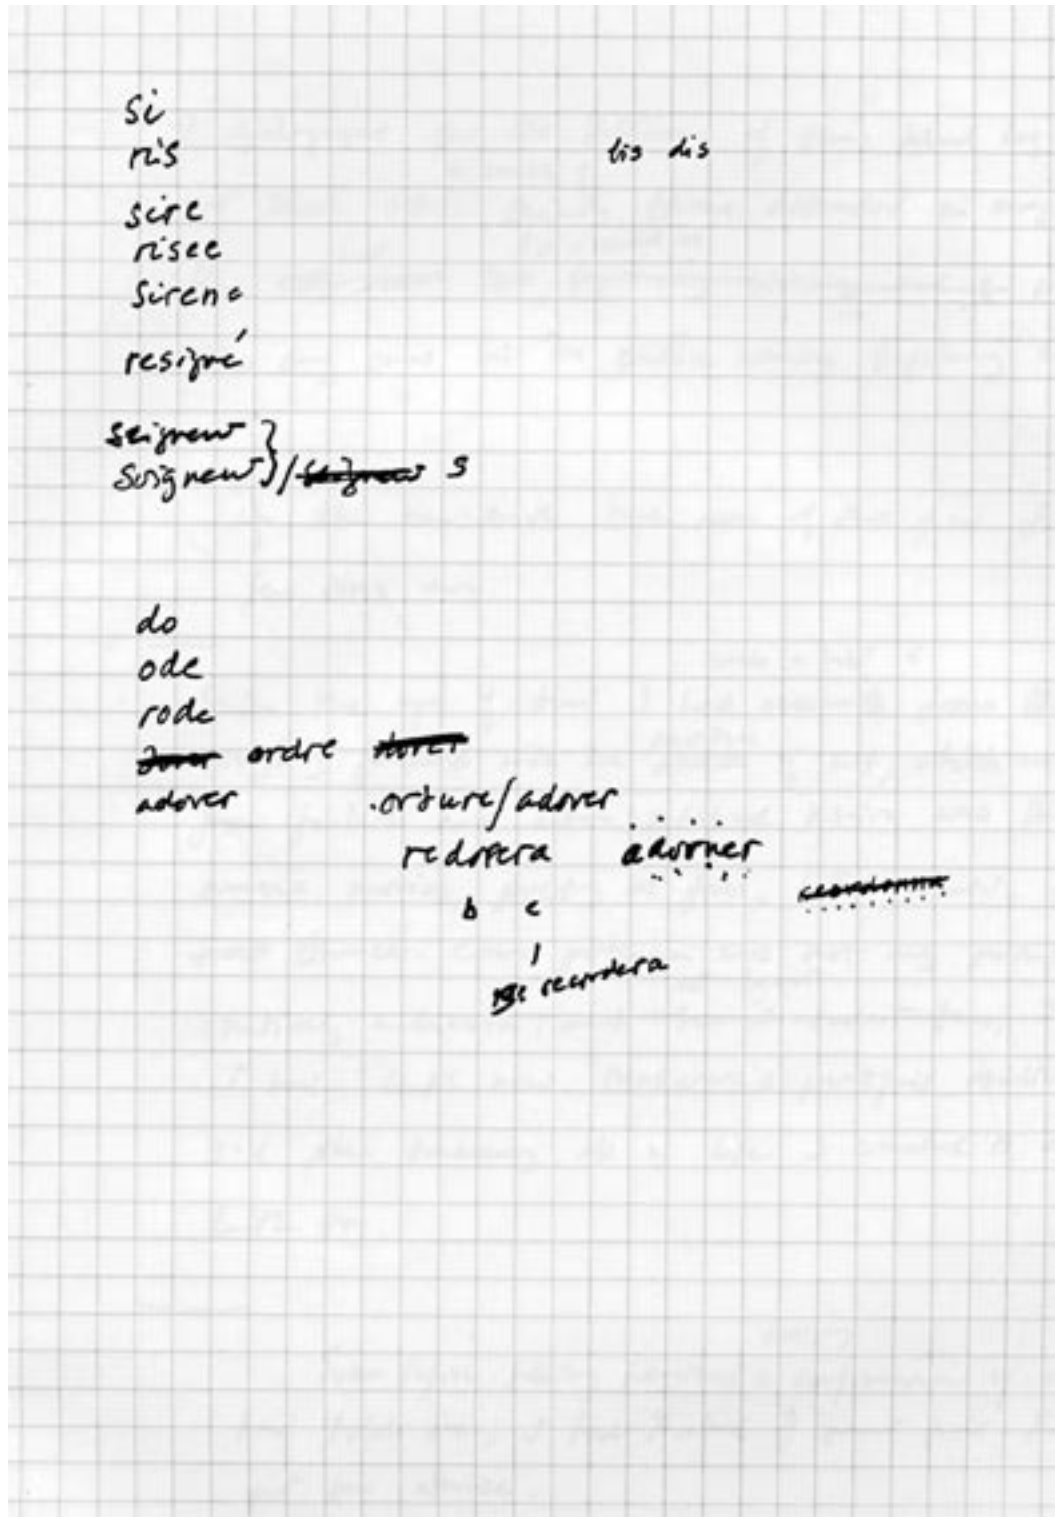 si
ris lis dis
sire
risee
sirene
resigné
seigneur }
soigneur } / seigneur s
do
ode
rode
ordre
adorer .ordure/adorer
redorera adorner
b c
l
recordera